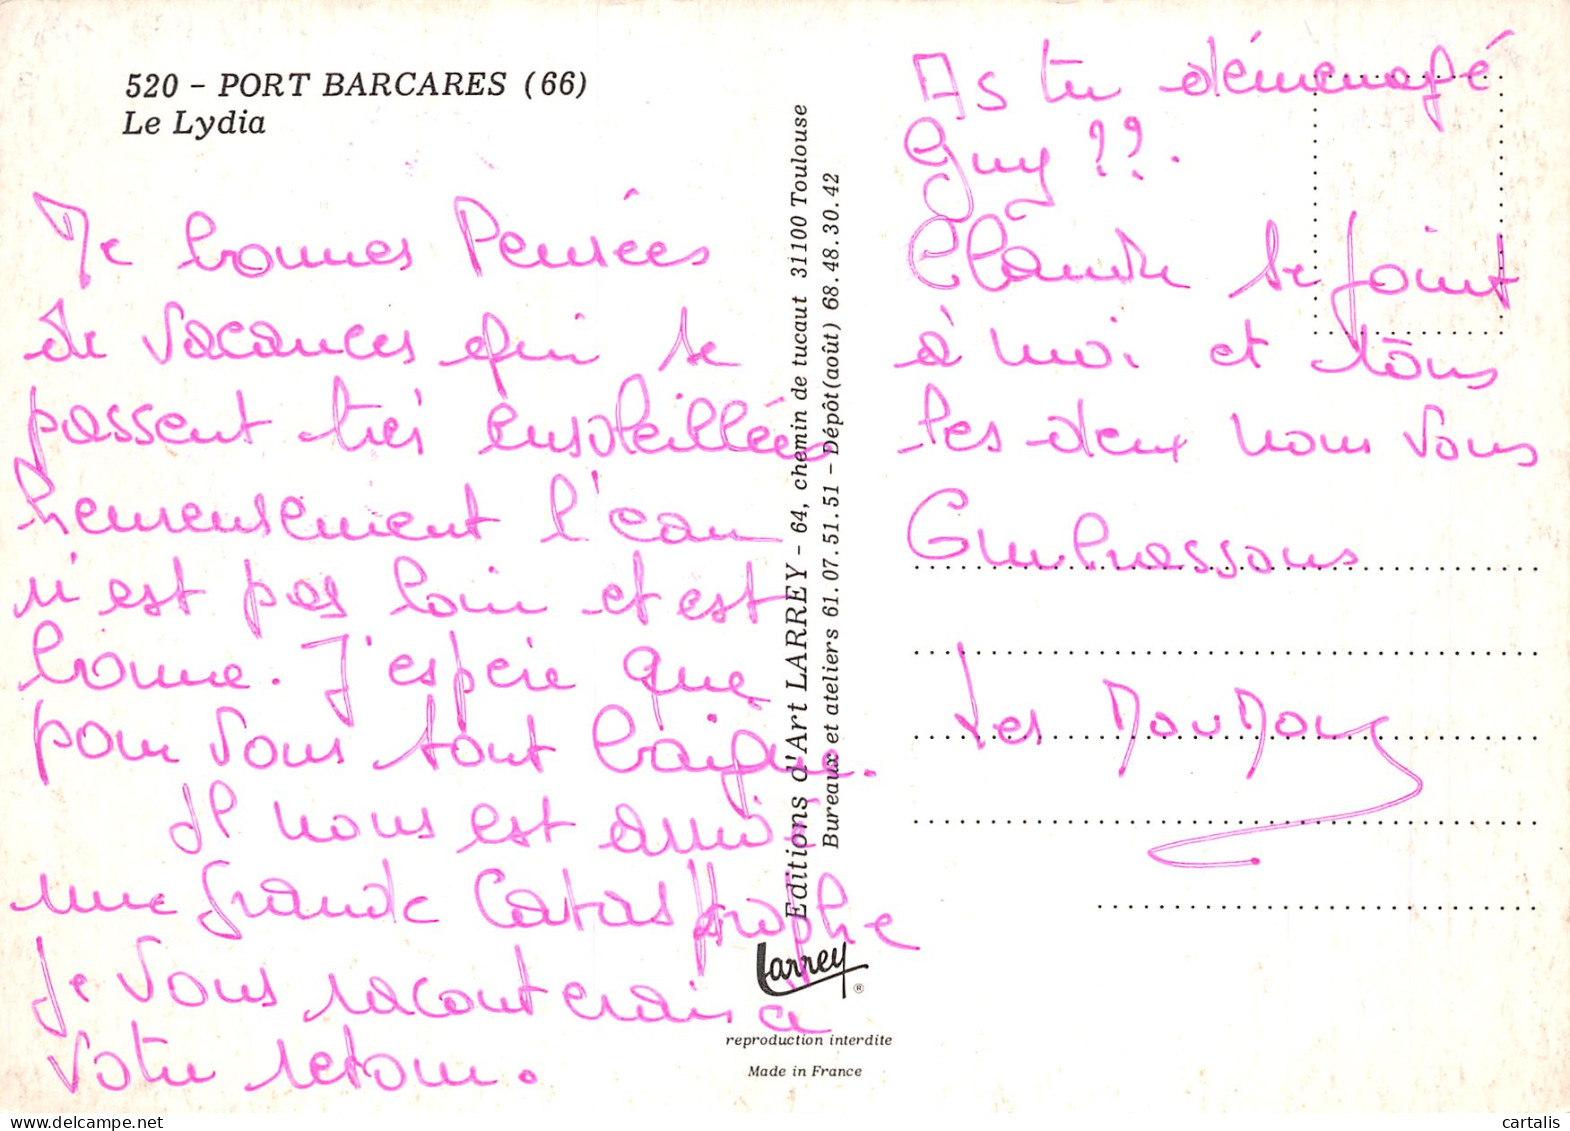 520 - PORT BARCARES (66)
Le Lydia
De bonnes Pensées
de vacances qui se
passent très ensoleillées
heureusement l'eau
n'est pas loin et est
bonne. J'espère que
pour vous tout baigne.
Il nous est arrivé
une grande Catastrophe
je vous raconterais a
votre retour.
Editions d'Art LARREY - 64, chemin de tucaut 31100 Toulouse
Bureaux et ateliers 61.07.51.51 - Dépôt(août) 68.48.30.42
Larrey ®
reproduction interdite
Made in France
As tu déménagé
Guy ??.
Claude se joint
à moi et tous
les deux nous vous
Embrassons
Les
cartalis